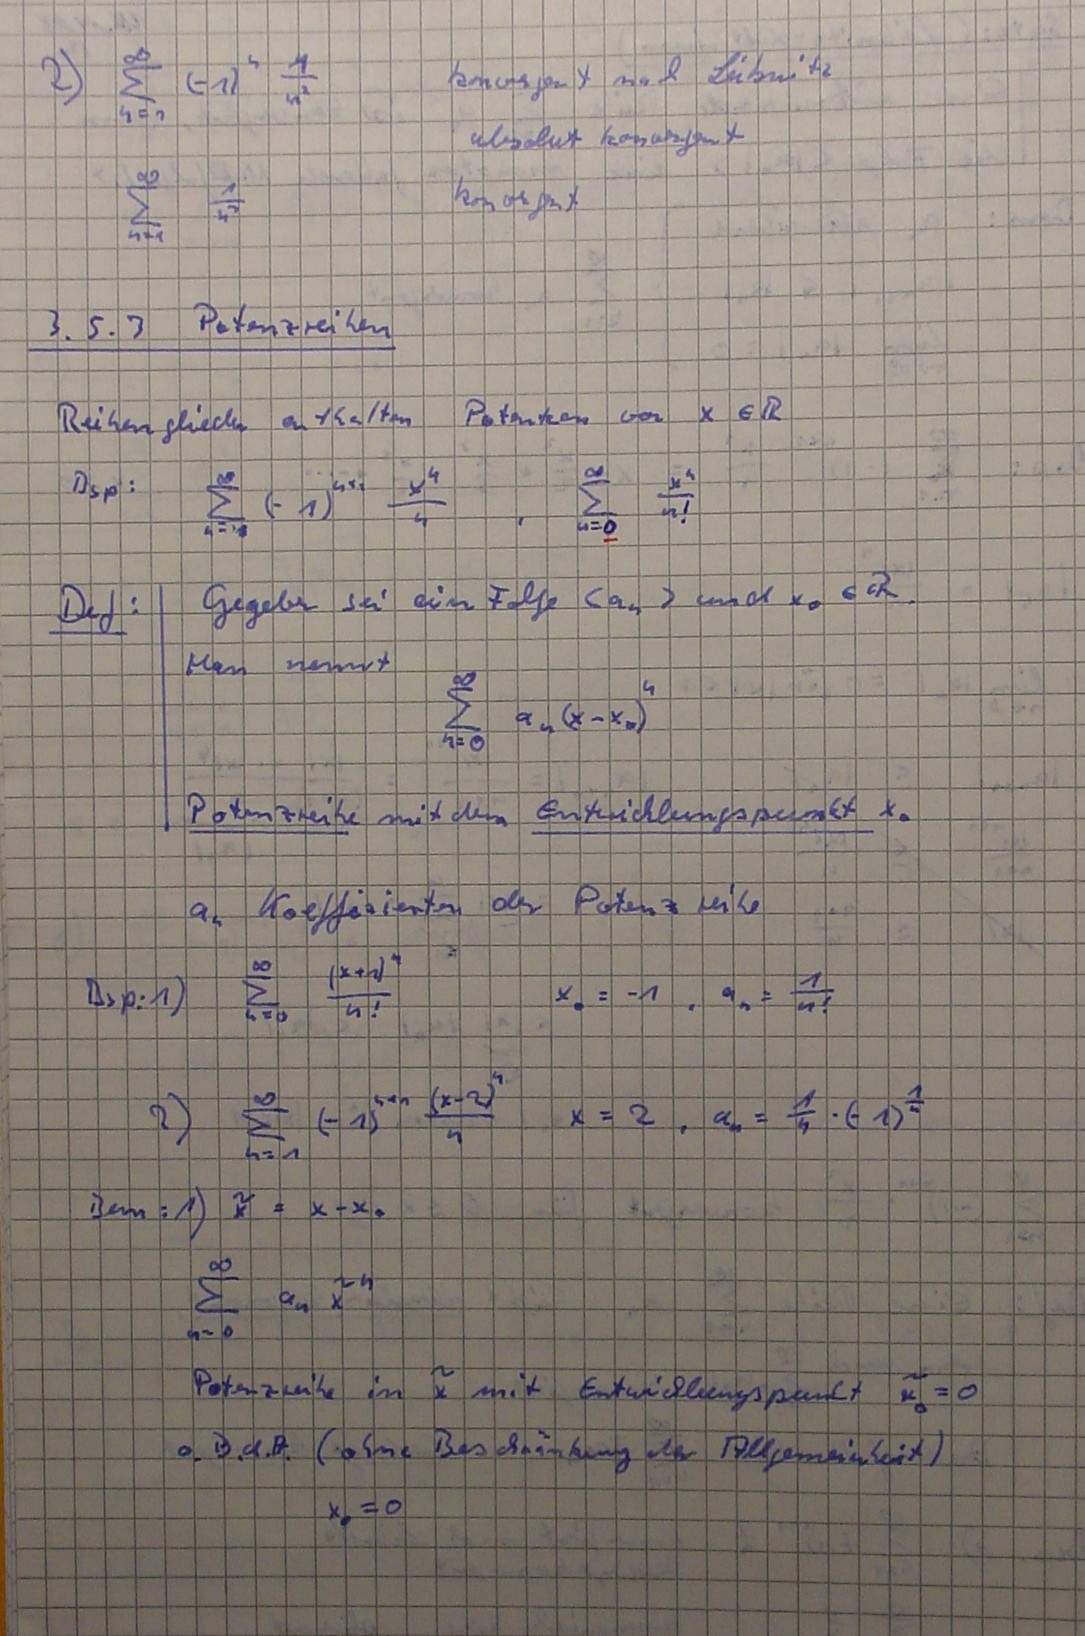 2) ∑_{n=1}^{∞} (-1)^n 1/n² konvergent nach Leibnitz
absolut konvergent
∑_{n=1}^{∞} 1/n² konvergent
3.5.3 Potenzreihen
Reihenglieder enthalten Potenzen von x ∈ ℝ
Bsp: ∑_{n=1}^{∞} (-1)^{n+1} x^n/n , ∑_{n=0}^{∞} x^n/n!
Def: Gegeben sei ein Folge <a_n> und x_0 ∈ ℝ.
Man nennt
∑_{n=0}^{∞} a_n (x-x_0)^n
Potenzreihe mit dem Entwicklungspunkt x_0
a_n Koeffizienten der Potenzreihe
Bsp: 1) ∑_{n=0}^{∞} (x+1)^n/n! x_0 = -1 , a_n = 1/n!
2) ∑_{n=1}^{∞} (-1)^{n+1} (x-2)^n/n x = 2 , a_n = 1/n · (-1)^{1/n}
Bem: 1) x̃ = x-x_0
∑_{n=0}^{∞} a_n x̃^n
Potenzreihe in x̃ mit Entwicklungspunkt x̃_0 = 0
o.B.d.A. (ohne Beschränkung der Allgemeinheit)
x_0 = 0